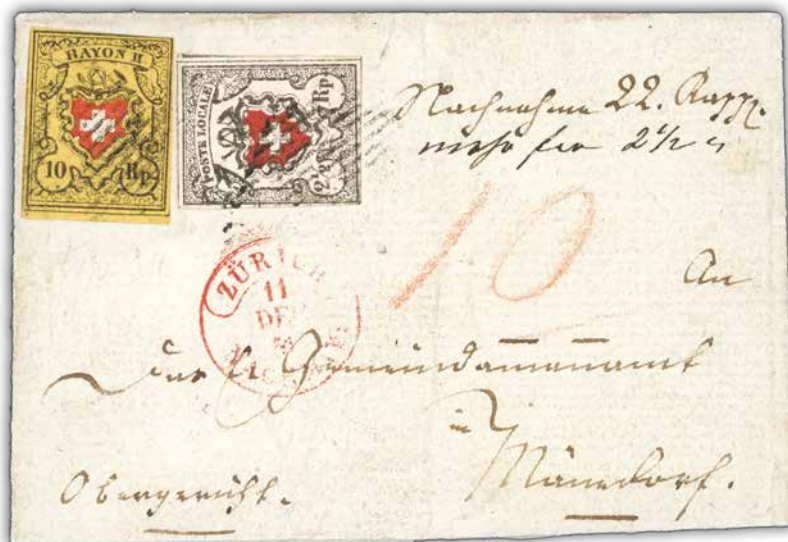 RAYON II
10 Rp.
POSTE LOCALE
2½ Rp.
Nachnahme 22. Rapp.
mehr fco 2½ "
10
ZÜRICH
11
DE
An
Das l. Gemeindamanamt
in
Männedorf.
Obergericht.